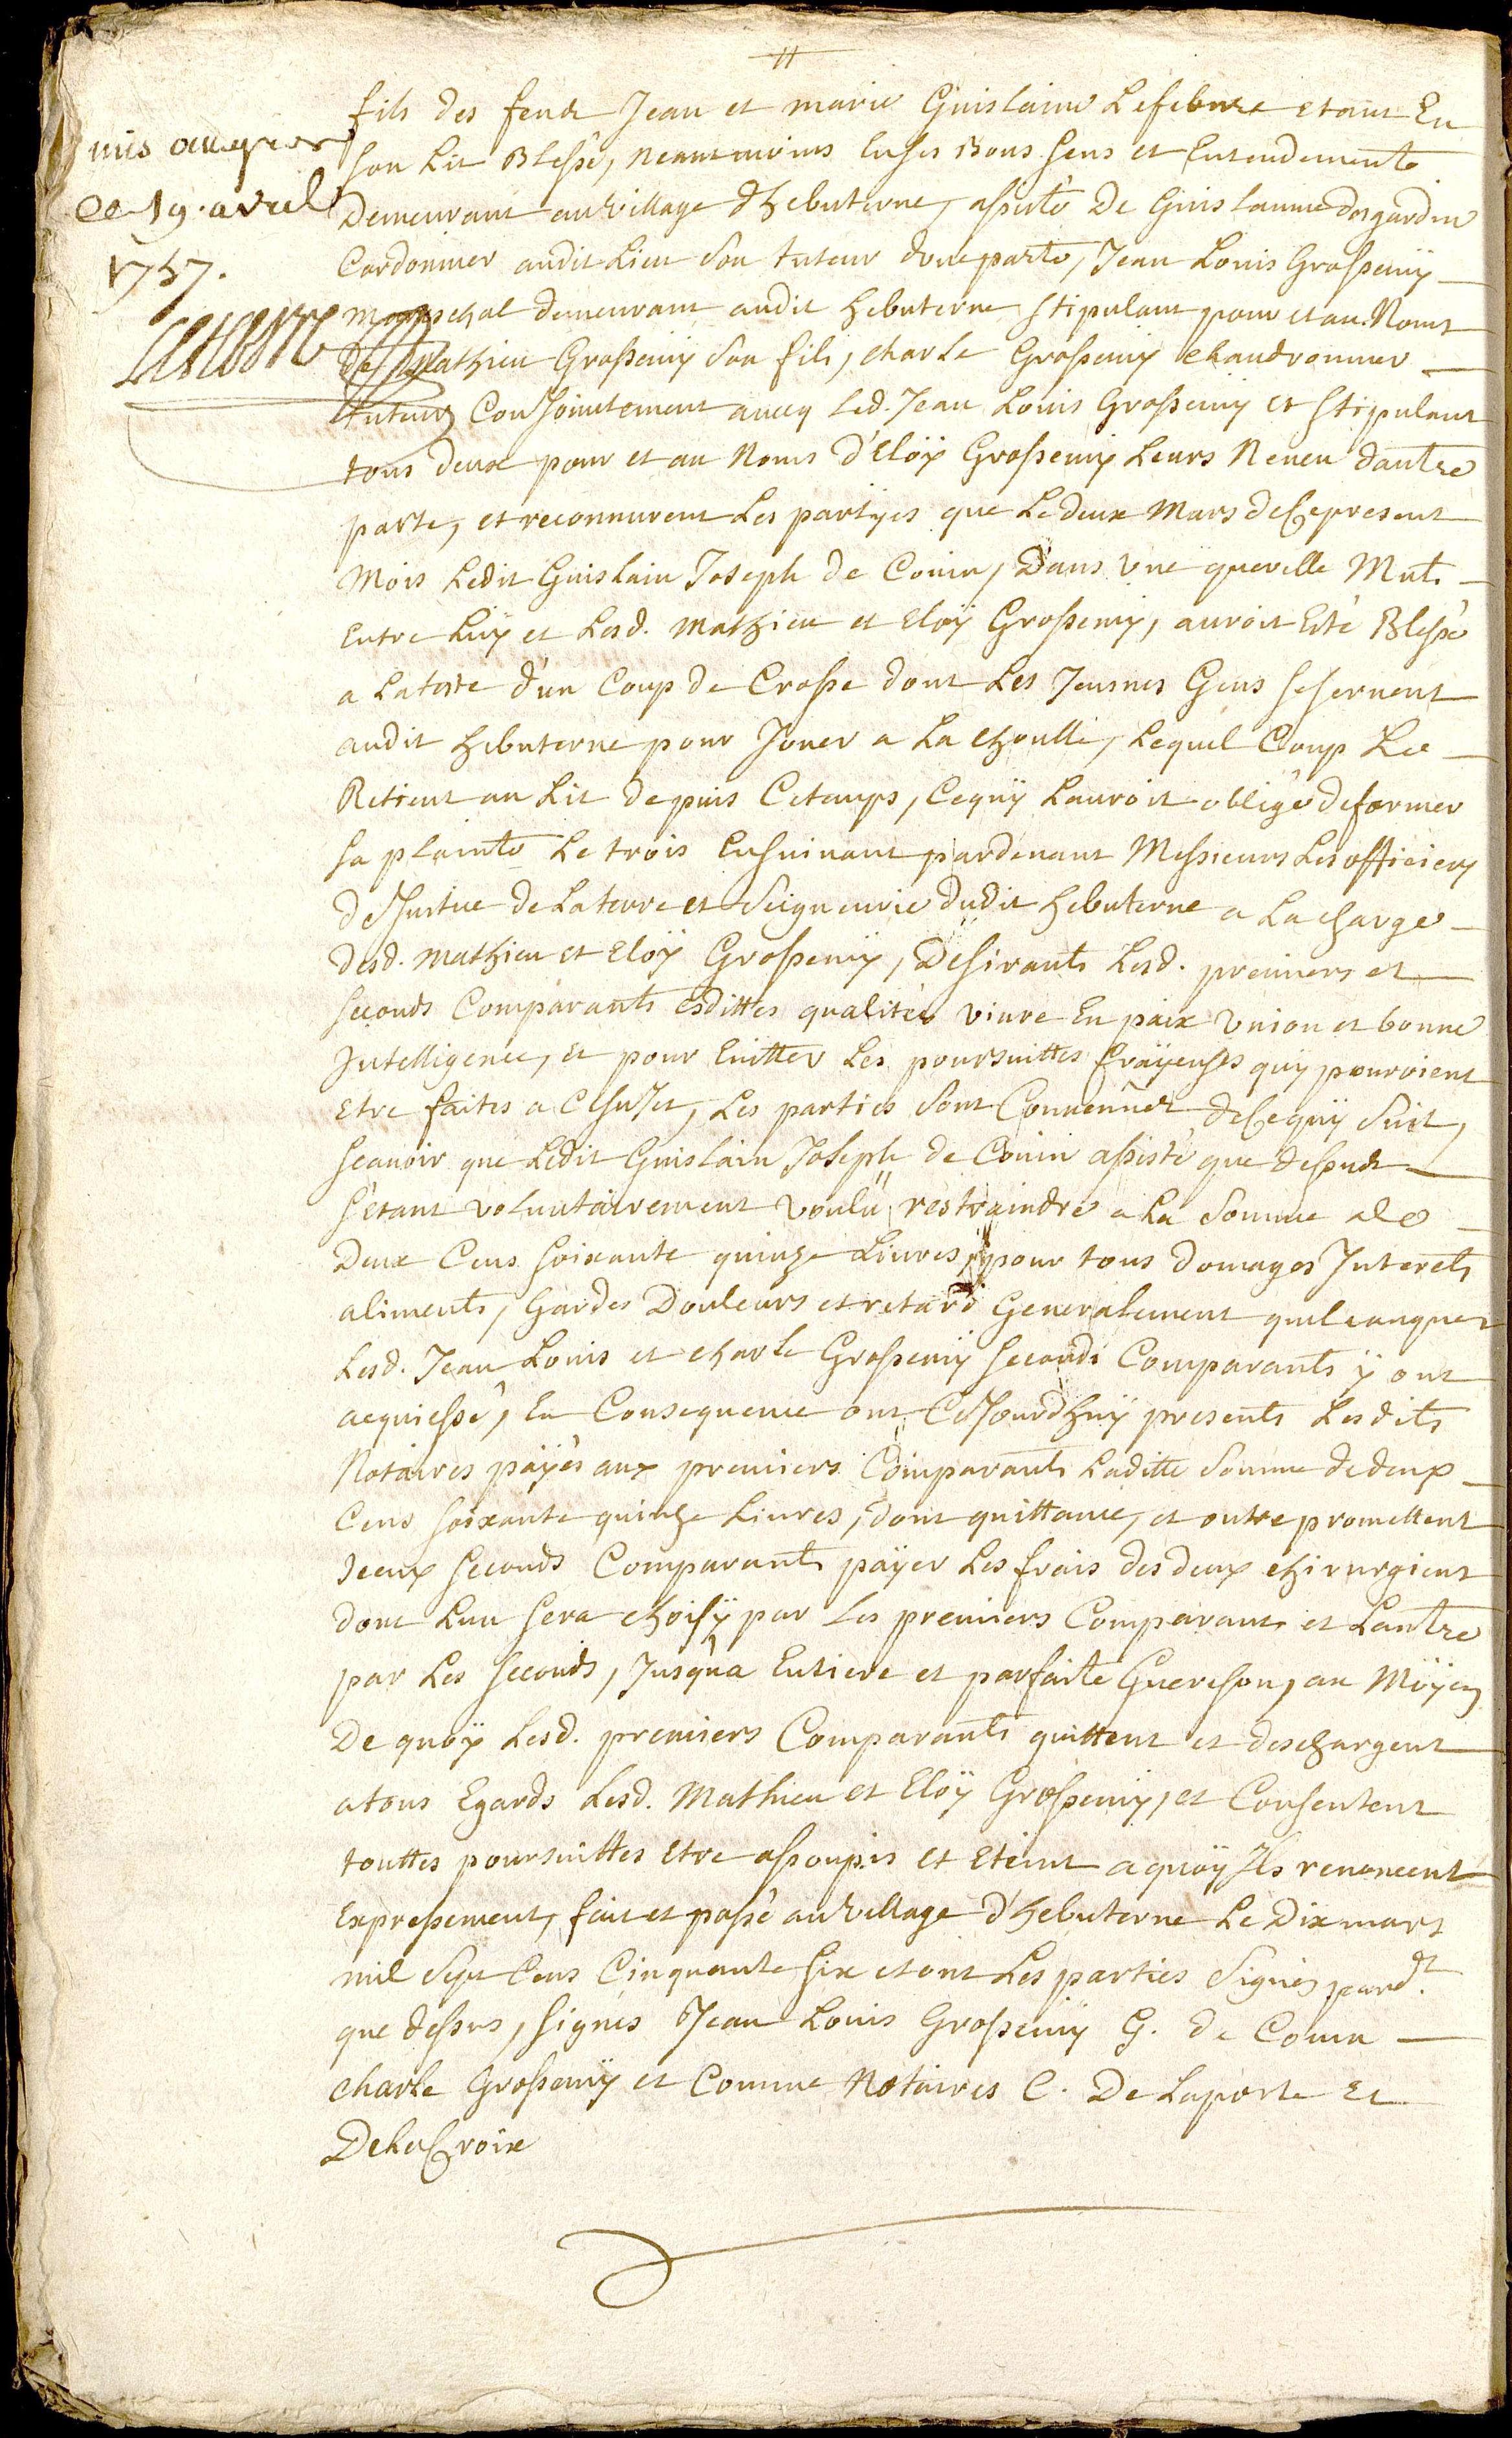 11
mis au gros
Le 19. avril
1757.
fils des feuz Jean et marie Guislaine Lefebvre etant En
son Lit Blessé, neantmoins en ses Bons sens et Entendements
Demeurant au village d'hebuterne, assisté De Guislain desgardin
Cordonnier audit Lieu Son tuteur d'une parte, Jean Louis Grossemÿ
Mareschal demeurant audit hebuterne stipulant pour et au Noms
de Mathieu Grossemy Son fils, Charle Grossemy chaudronnier
tuteurs Conjointement avecq led. Jean Louis Grossemy et stipulant
tous deux pour et au Noms d'Eloÿ Grossemy Leurs Neveu dautre
parte, et reconnurent Les partÿes que Le deux Mars de Ce present
Mois Ledit Guislain Joseph de Couin, Dans une querelle Mut.
Entre Luÿ et Lesd. Mathieu et Eloÿ Grossemy, auroit Eté Blessé
a La teste d'un Coup de Crosse dont Les Jeusnes Gens se servent
audit hebuterne pour Jouer a La choulle, Lequel Coup Le
Retient au Lit depuis Ce temps, Ce quÿ Lauroit obligé de former
sa plainte Le trois Ensuivant pardevant Messieurs Les officiers
de Justice de La terre et Seigneurie dudit hebuterne a La charge
desd. Mathieu et Eloÿ Grossemÿ, Desirants Lesd. premiers et
seconds Comparants esdittes qualités vivre En paix union et bonne
Intelligence, Et pour Eviter Les poursuittes fraÿeuses quÿ pourroient
Etre faites a Ce sujet, Les parties Sont Convennuez de Ce quÿ Suit,
scavoir que Ledit Guislain Joseph de Couin assisté que dessus
s'etant volontairement voulu restraindre a La Somme de
Deux Cens soixante quinze Livres, pour tous domages Interets
aliments, Gardes Douleurs et retard Generalement quelconques
Lesd. Jean Louis et charle Grossemÿ seconds Comparants ÿ ont
acquiessé, En Consequence ont Cejourdhuÿ presents Lesdits
Notaires paÿés aux premiers Comparants Laditte Somme de deux
Cens soixante quinze Livres, dont quittance, et outre promettent
Iceux seconds Comparants paÿer Les frais des deux chirurgiens
dont Lun sera choisÿ par Les premiers Comparans et Lautre
par Les seconds, Jusqu'a Entiere et parfaite Guerison, au Moÿen
De quoÿ Lesd. premiers Comparants quittent et deschargent
a tous Egards Lesd. Mathieu et Eloÿ Grossemÿ, et Consentent
touttes poursuittes Etre assoupis et Eteint a quoÿ Ils renoncent
Expressement, fait et passé au village d'hebuterne Le Dix mars
mil Sept Cens Cinquante six et ont Les parties Signés pardt.
que dessus, signés Jean Louis Grossemÿ G. de Couin
charle Grossemÿ et Comme Notaires C. De Laporte Et
DeLaCroix